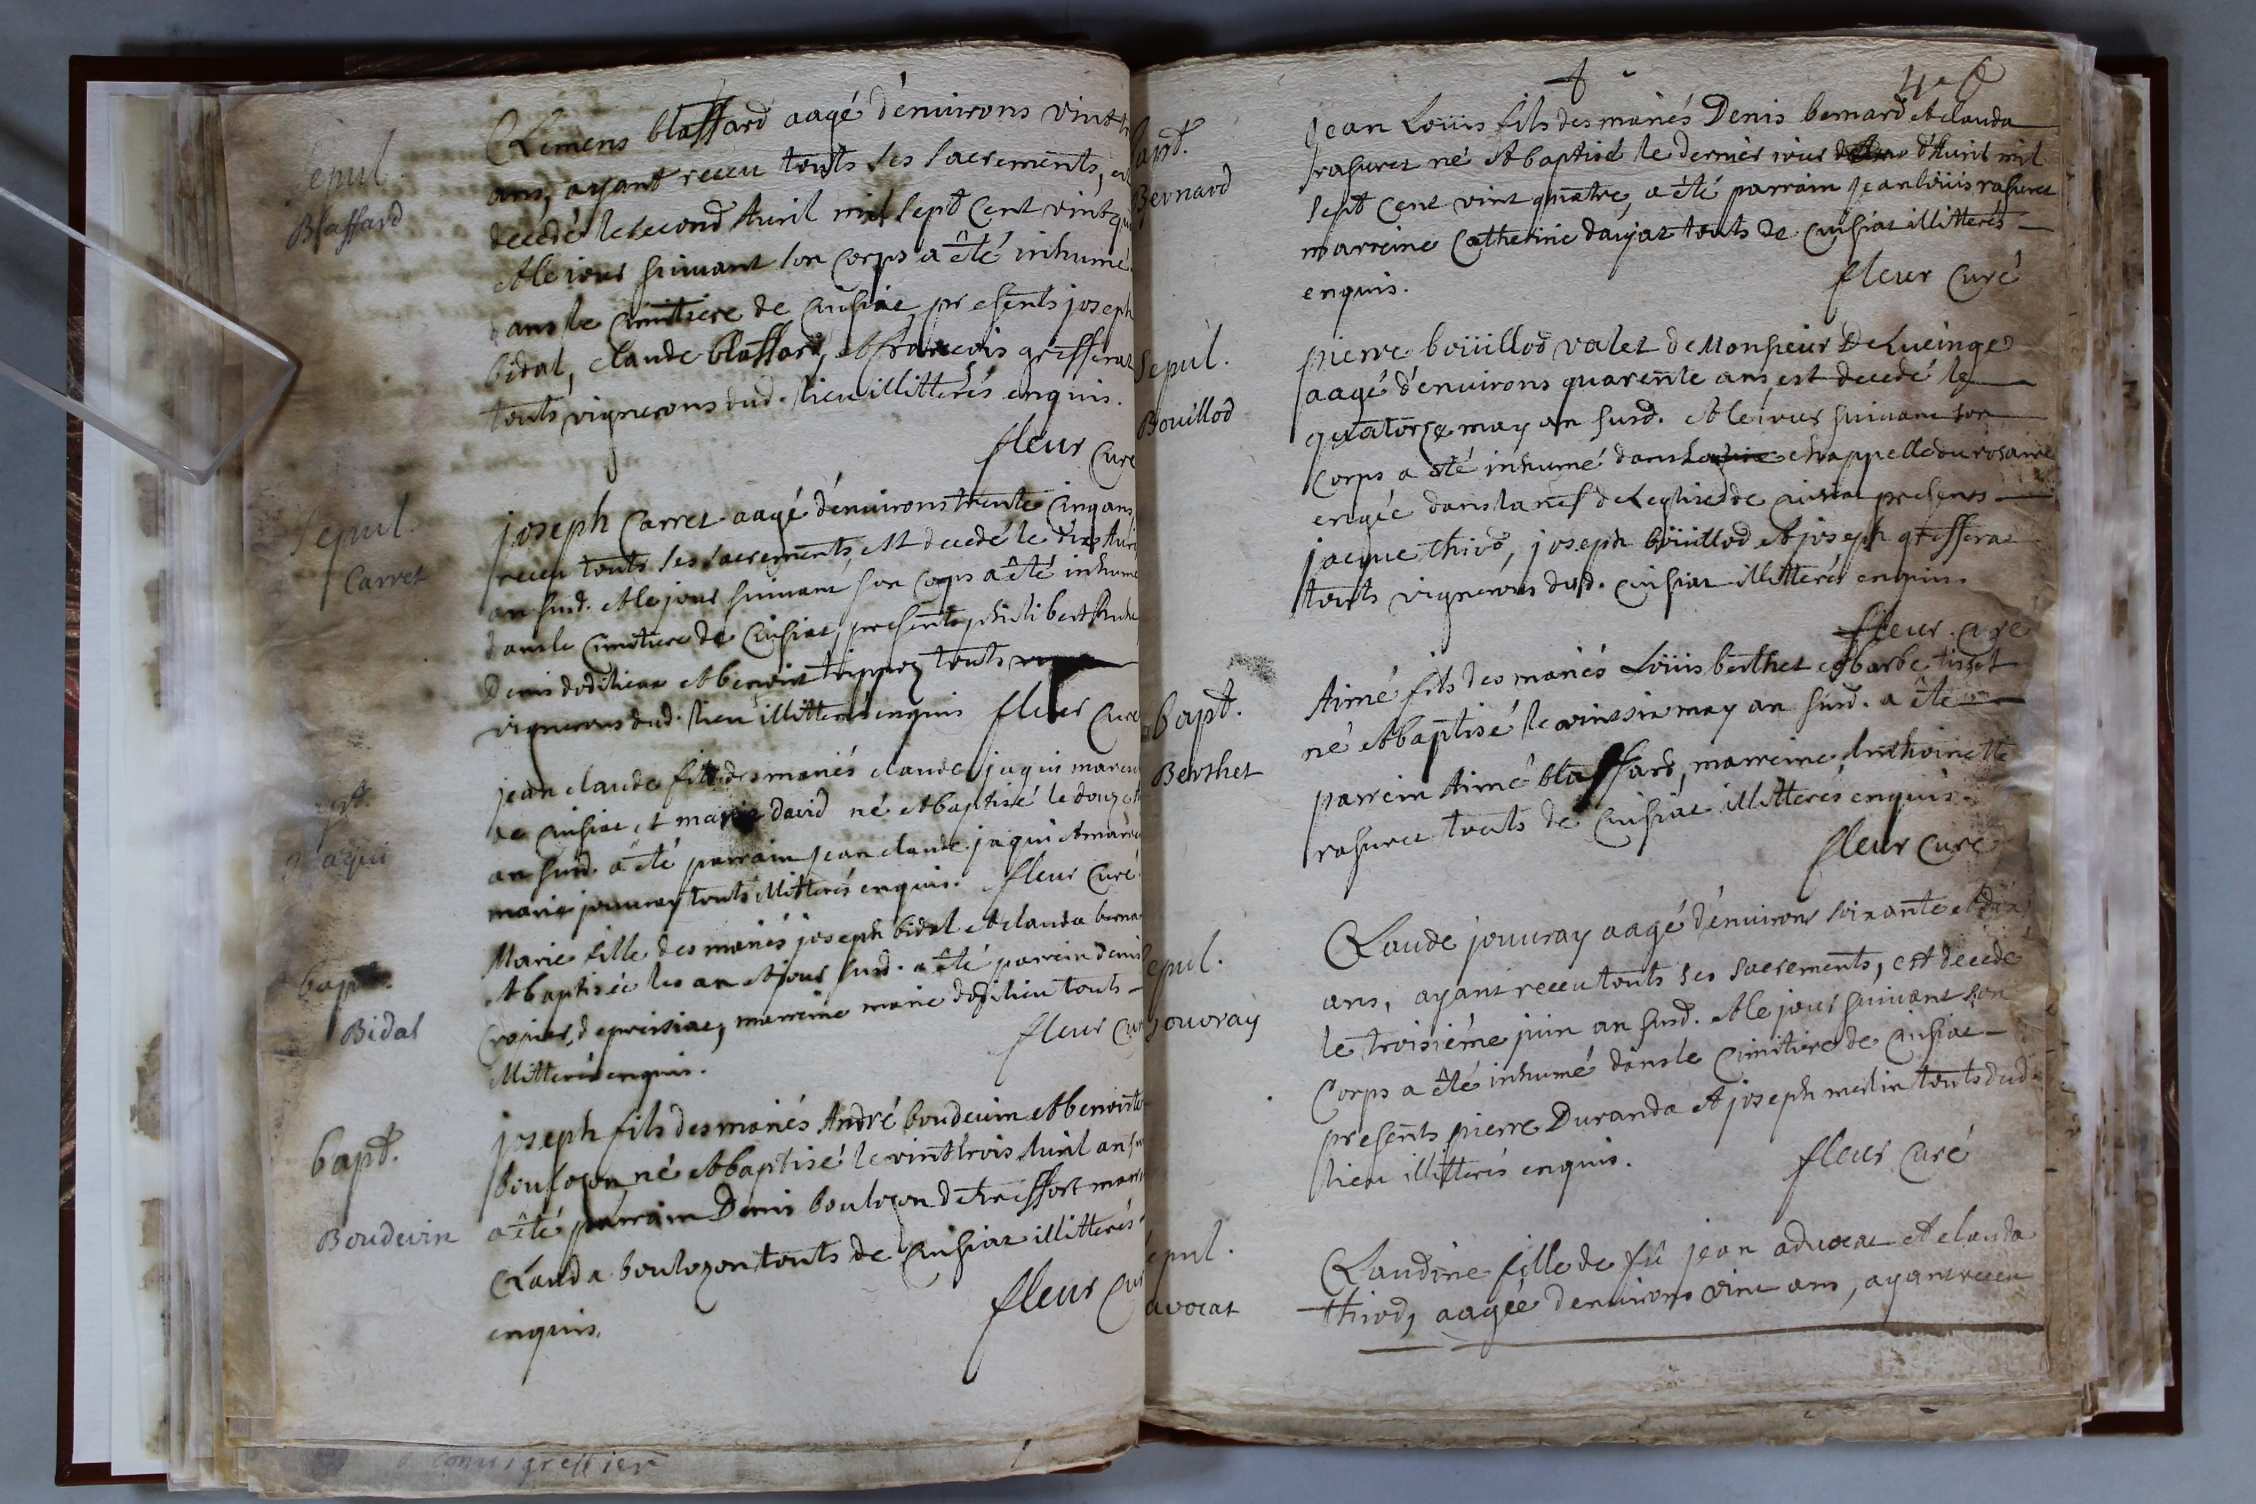 Sepul.
Blaffard
Clemens blaffard aagé d'enuirons vint
ans, ayant receu touts ses sacrements, est
decedé le second Auril mil sept Cent vint qua
et le iour suiuant son corps a êté inhumé
dans le cimitiere de cuisiat, presents joseph
bidal, claude blaffard, et francois grifferat
touts vignerons dud. lieu illitterés enquis.
fleur Curé
Sepul.
Carret
joseph Carret aagé d'enuirons trente cinq ans
receu touts ses sacrements, est decedé le dix Auri
an susd. et le jour suiuant son corps a êté inhumé
dans le cimitiere de cuisiat, presents philibert
Denis dodilieux et benoist trippoz touts
vignerons dud. lieu illitterés enquis fleur Curé
bapt.
Jaqui
jean claude fils des mariés claude jaqui
de cuisiat, et marie david né et baptisé le douze
an susd. a êté parrain jean claude jaqui et
marie jouuray touts illitterés enquis. fleur Curé
bapt.
Bidal
Marie fille des mariés joseph bidal et clauda berna
et baptisée les an et jour susd. a êté parrein denis
de pressiat, marreine marie dodilieu touts
illitterés enquis. fleur Curé
bapt.
Boudevin
joseph fils des mariés André boudeuin et benoiste
boulozon, né et baptisé le vint trois Auril an su
a êté parrain Denis boulozon de treffort marr
Clauda boulozon touts de cuisiat illitterés
enquis. fleur Cur
bapt.
Bernard
jean Loüis fils des mariés Denis bernard et clauda
rasuret né et baptisé le dernier iour d'Auril mil
sept Cent vint quatre, a êté parrain jean loüis rasuret
marreine Catherine daujat touts de cuisiat illitterés
enquis. fleur Curé
Sepul.
Bouillod
pierre boüillod valet de Monsieur De Lucinge
aagé d'enuirons quarente ans, est decedé le
quatorze may an susd. et le iour suiuant son
corps a êté inhumé dans chappelle du rosaire
erigée dans la nef de L'eglise de cuisiat presents
jacque thiod, joseph boüillod et joseph grifferat
touts vignerons dud. cuisiat illitterés enquis.
fleur. Curé
bapt.
Berthet
Aimé fils des mariés Loüis berthet et barbe tissot
né et baptisé le vint six may an susd. a êté
parrein Aimé blaffard, marreine Anthoinette
rasuret touts de cuisiat illitterés enquis.
fleur Curé
sepul.
Jouvray
Claude jouuray aagé d'enuirons soixante et dix
ans, ayant receu touts ses sacrements, est decedé
le troisiéme juin an susd. et le jour suiuant son
Corps a êté inhumé dans le cimitiere de cuisiat
presents pierre Duranda et joseph merlin touts dud.
lieu illitterés enquis. fleur Curé
sepul.
avocat
Claudine fille de fû jean aduocat et clauda
thiod, aagée d'enuirons vint ans, ayant receu